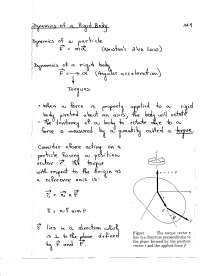 Dynamics of a Rigid Body
Dynamics of a particle
F = ma (Newton's 2nd Law)
Dynamics of a rigid body
F → α (Angular acceleration)
Torques
• When a force is properly applied to a rigid
body pivoted about an axis, the body will rotate
• The tendency of a body to rotate due to a
force is measured by a quantity called a torque.
Consider a force acting on a
particle having a position
vector r. The torque
with respect to the origin as
a reference axis is:
τ = r × F
τ = r F sin θ
τ lies in a direction which
is ⊥ to the plane defined
by r and F.
Figure The torque vector τ
lies in a direction perpendicular to
the plane formed by the position
vector r and the applied force F.